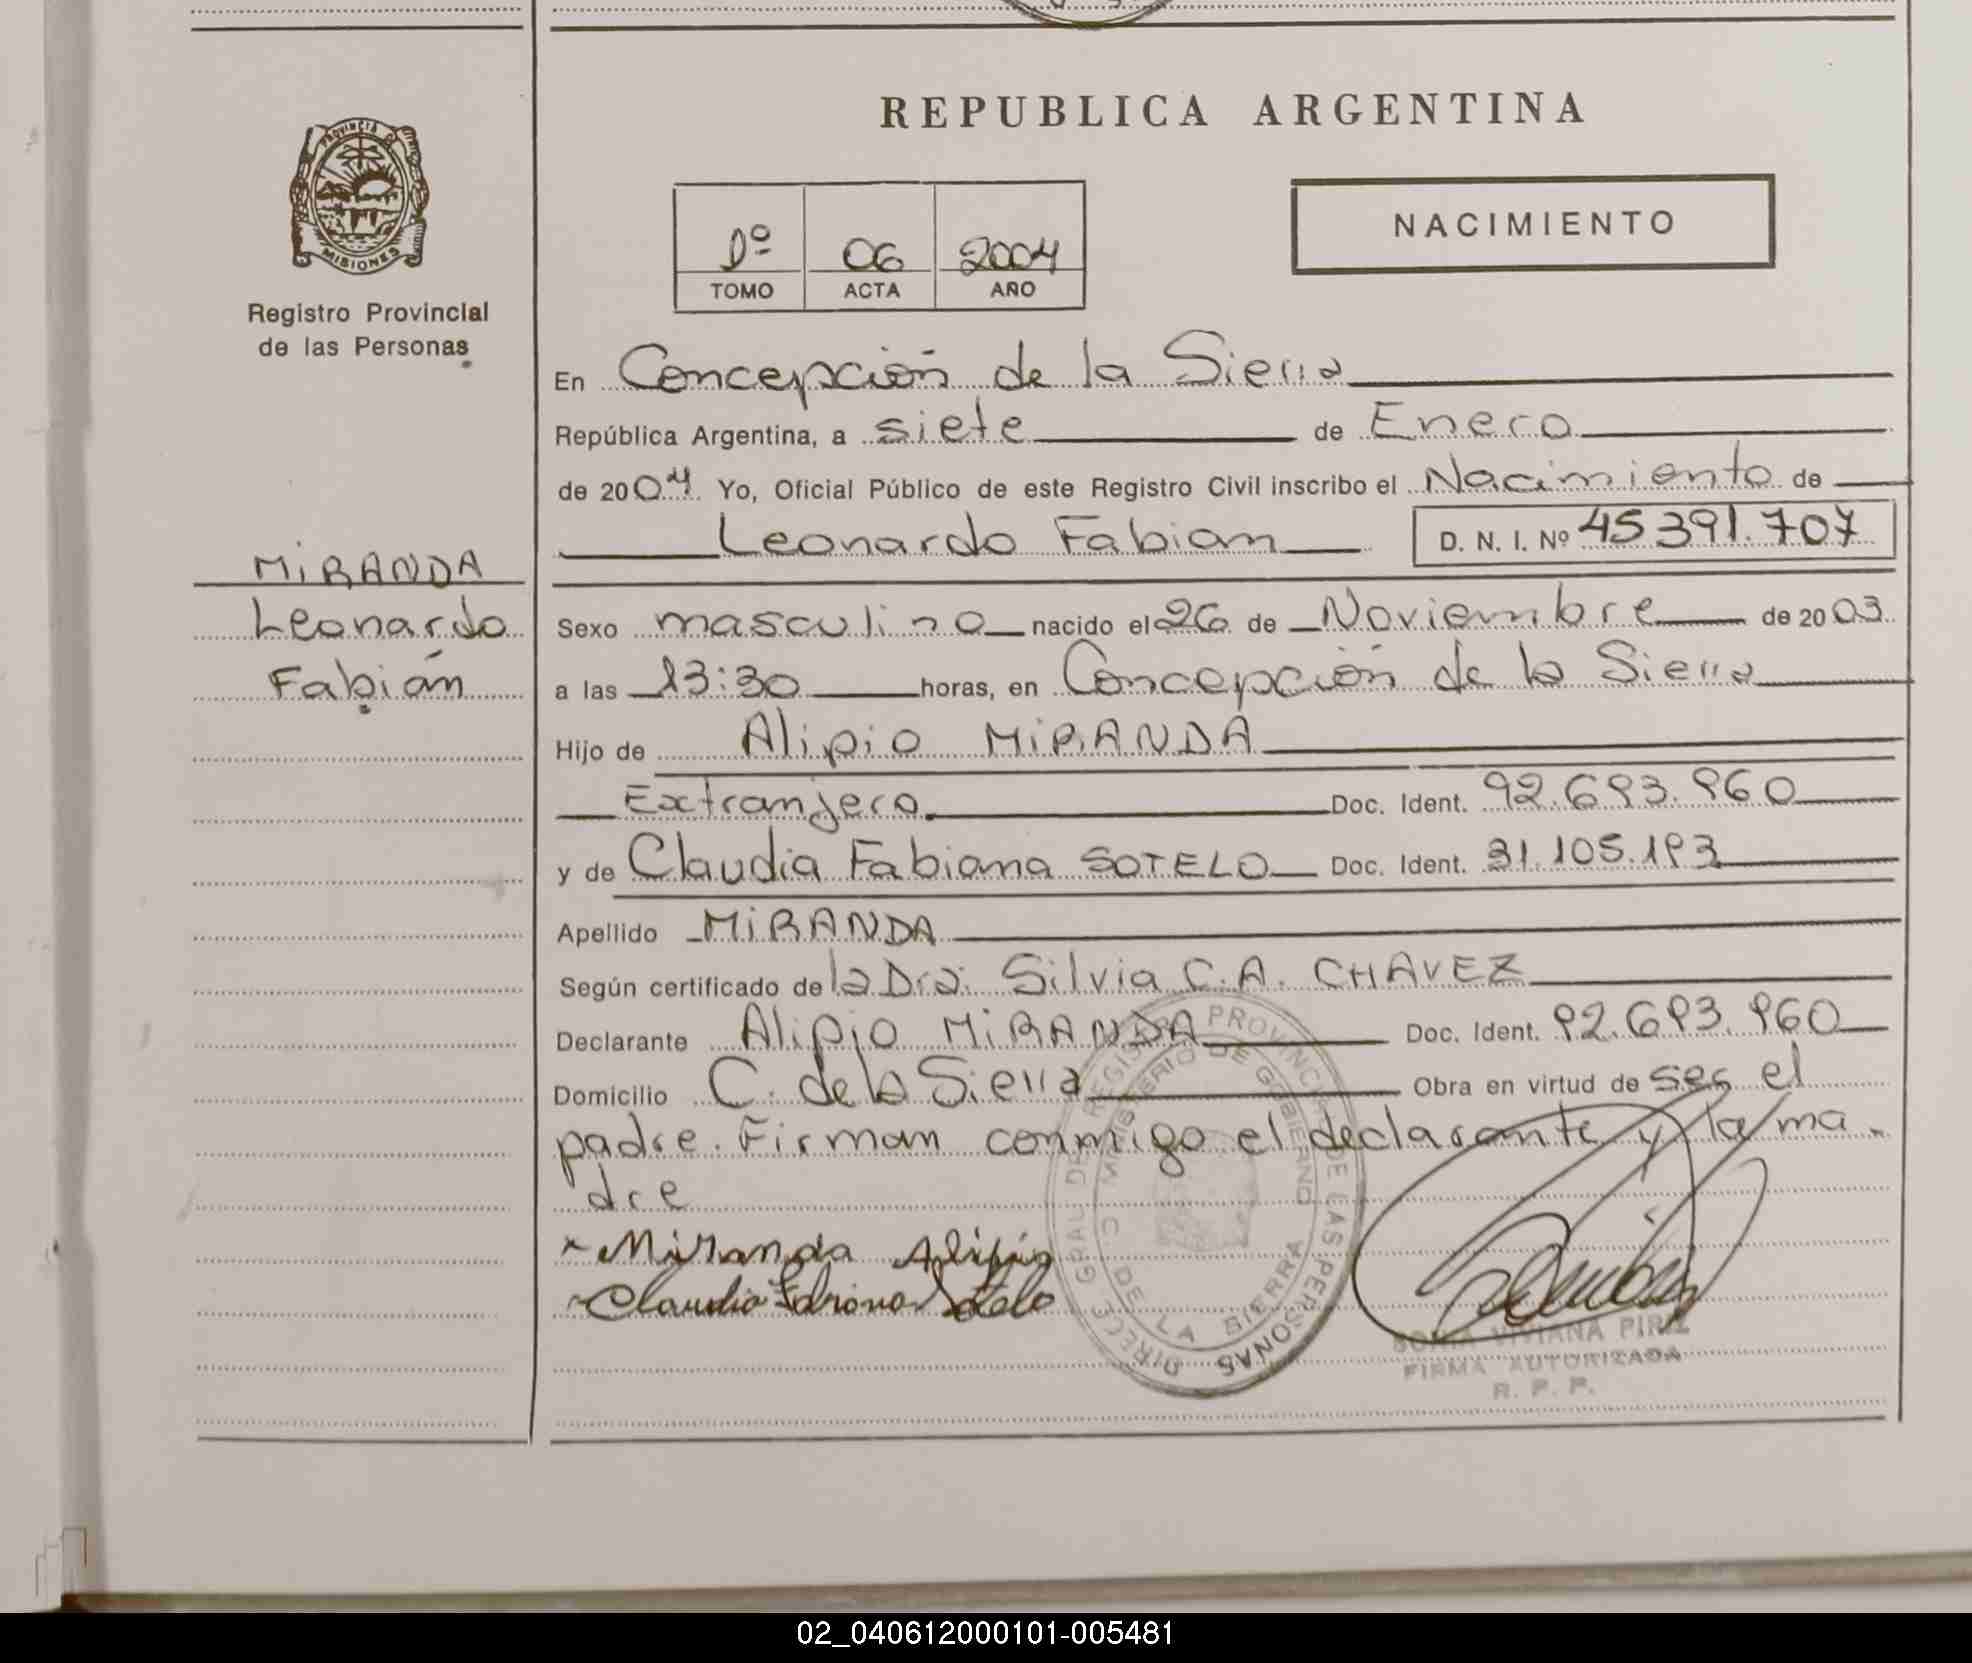 REPUBLICA ARGENTINA
PROVINCIA DE MISIONES
Registro Provincial
de las Personas
1º 06 2004
TOMO ACTA AÑO
NACIMIENTO
En Concepción de la Sierra
República Argentina, a siete de Enero
de 2004. Yo, Oficial Público de este Registro Civil inscribo el Nacimiento de
Leonardo Fabian D. N. I. Nº 45 391.707
MIRANDA
Leonardo
Fabián
Sexo masculino nacido el 26 de Noviembre de 2003
a las 13:30 horas, en Concepción de la Sierra
Hijo de Alipio MIRANDA
Extranjero. Doc. Ident. 92.693.960
y de Claudia Fabiana SOTELO Doc. Ident. 31.105.193
Apellido MIRANDA
Según certificado de la Dra. Silvia C.A. CHAVEZ
Declarante Alipio MIRANDA Doc. Ident. 92.693.960
Domicilio C. de la Sierra Obra en virtud de ser el
padre. Firman conmigo el declarante y la ma-
dre
x Miranda Alipio
Claudia Fabiana Sotelo
DIRECC. GRAL DE REGISTRO PROVINCIAL DE LAS PERSONAS
MINISTERIO DE GOBIERNO
C. DE LA SIERRA
SONIA VIVIANA PIRIZ
FIRMA AUTORIZADA
R. P. P.
02_040612000101-005481